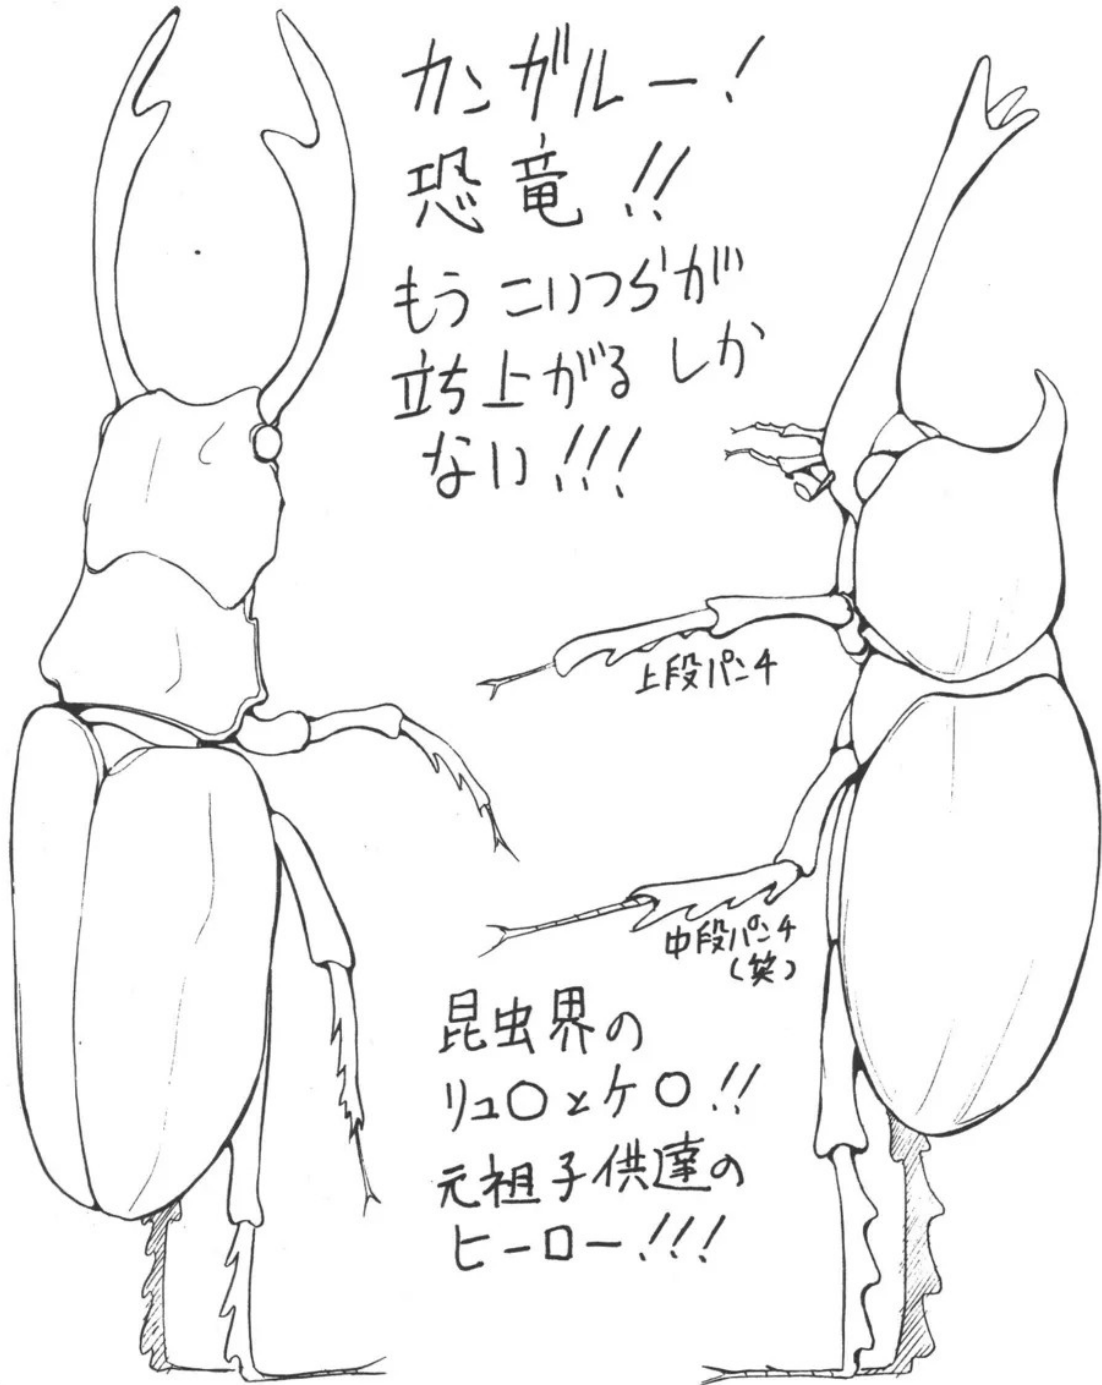 カンガルー!
恐竜!!
もうこいつらが
立ち上がるしか
ない!!!
上段パンチ
中段パンチ
(笑)
昆虫界の
リュ〇とケ〇!!
元祖子供達の
ヒーロー!!!